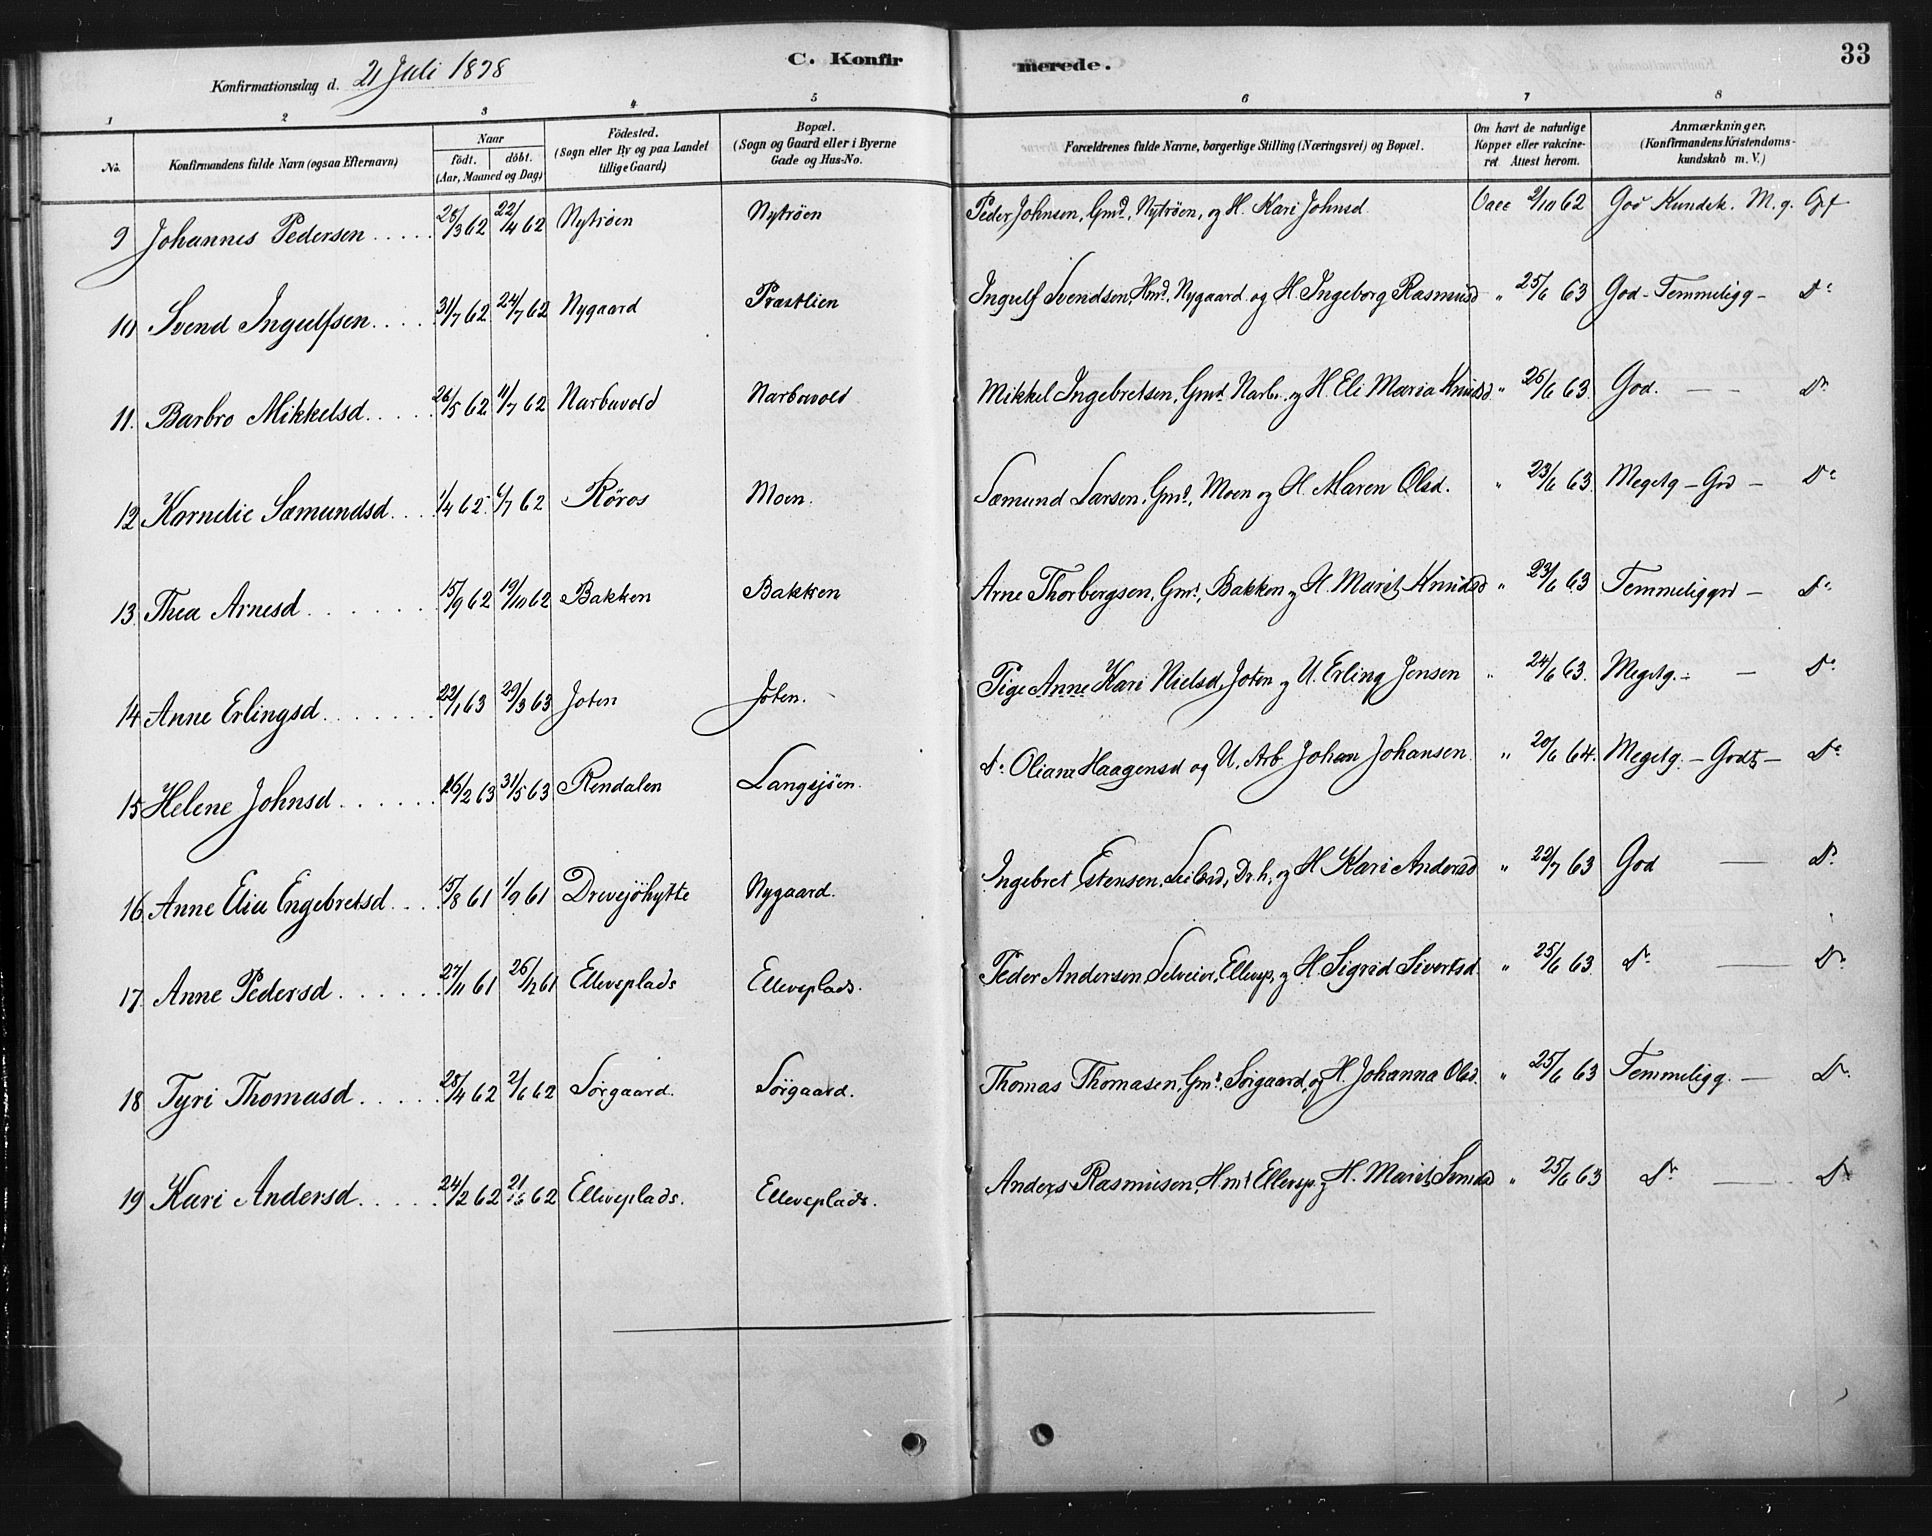 Konfirmationsdag d. 21 Juli 1878
C. Konfirmerede.
33
1 2 3 4 5 6 7 8
No. Konfirmandens fulde Navn (ogsaa Efternavn) Naar födt. döbt. (Aar, Maaned og Dag) Födested. (Sogn eller By og paa Landet tillige Gaard) Bopæl. (Sogn og Gaard eller i Byerne Gade og Hus-No. Forældrenes fulde Navne, borgerlige Stilling (Næringsvei) og Bopæl. Om havt de naturlige Kopper eller vakcineret. Attest herom. Anmærkninger. (Konfirmandens Kristendomskundskab m. V.)
9 Johannes Pedersen 28/3 62 22/4 62 Nytröen Nytröen Peder Johnsen, Gmd, Nytröen, og H. Kari Johnsd. Vacc 2/10 62 God Kundsk. M. g.
10 Svend Ingulfsen 31/7 62 24/7 62 Nygaard Præstlien Ingulf Svendsen, Hmd, Nygaard og H. Ingeborg Rasmusd " 25/6 63 God - Temmeligg - Do
11. Barbro Mikkelsd 26/5 62 11/7 62 Narbuvold Narbuvold Mikkel Ingebretsen, Gmd. Narb. og H. Eli Maria Knudsd " 25/6 63 God. — — Do
12 Kornelie Sæmundsd 1/4 62 6/7 62 Röros Moen. Sæmund Larsen, Gmd, Moen og H. Maren Olsd. " 23/6 63 Megetg - God - Do
13. Thea Arnesd 15/9 62 19/10 62 Bakken Bakken Arne Thorbergsen, Gmd, Bakken og H. Marit Knudsd " 23/6 63 Temmeliggod - Do
14. Anne Erlingsd 22/1 63 29/3 63 Joten Joten. Pige Anne Kari Nielsd, Joten og U. Erling Jensen " 24/6 63. Megetg. - — Do
15 Helene Johnsd 16/2 63 31/5 63 Rendalen Langsjöen. Do Oliane Haagensd og U. Arb. Johan Johansen " 20/6 64. Megetg. - Godt - Do
16. Anne Elie Engebretsd 15/8 61 1/9 61 Drevsjöhytte Nygaard. Ingebret Estensen, Dr.h. og H. Kari Andersd " 22/7 63 God — Do
17. Anne Pedersd 27/11 61 26/12 61 Elleveplads Elleveplads. Peder Andersen Selveier, Ellevp. og H. Sigrid Sivertsd. " 25/6 63. Do — Do
18 Tyri Thomasd 28/4 62 2/6 62 Sörgaard. Sörgaard. Thomas Thomasen, Gmd. Sörgaard, og H. Johanna Olsd. " 25/6 63 Temmeligg. — Do
19 Kari Andersd 24/2 62 21/6 62 Elleveplads. Elleveplads. Anders Rasmusen, Hmd Ellevp. og H. Marit Svendsd " 25/6 63 Do — Do